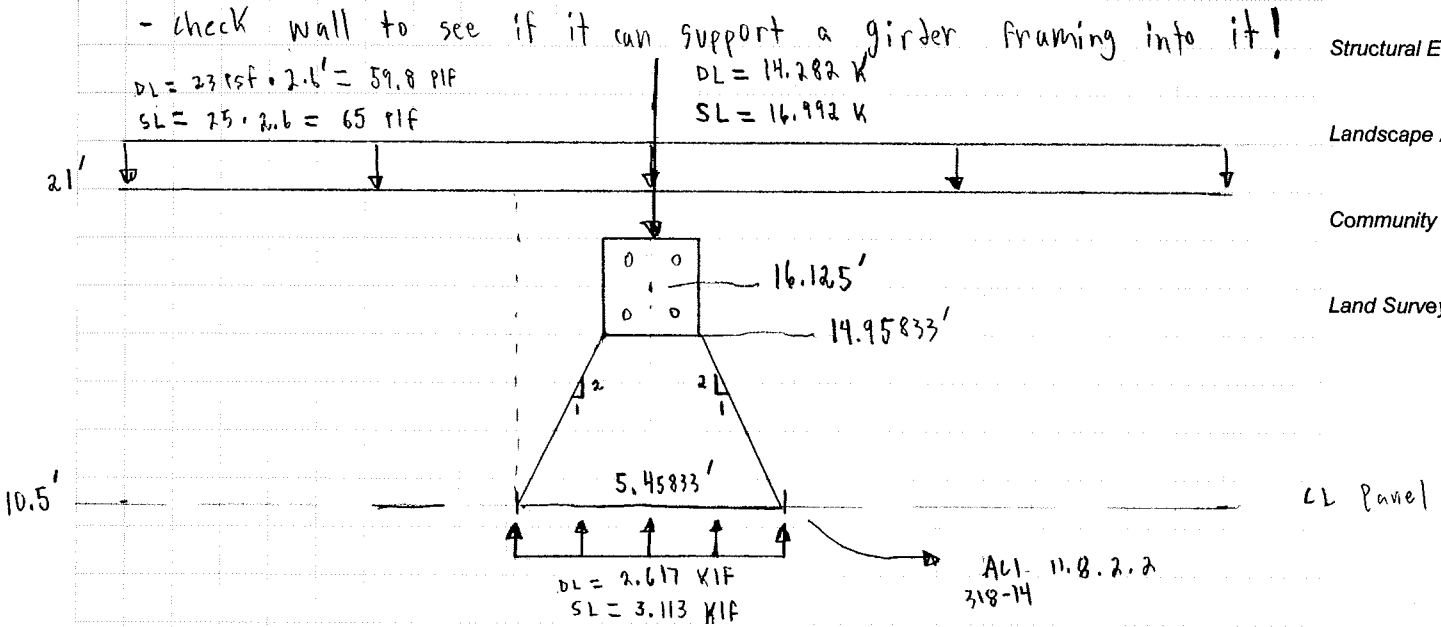 - check wall to see if it can support a girder framing into it!
Structural E
DL = 23 PSF · 2.6' = 59.8 PlF
SL = 25 · 2.6 = 65 PlF
DL = 14.282 K
SL = 16.992 K
Landscape
21'
Community
16.125'
Land Survey
14.95833'
2
1
2
1
5.45833'
10.5'
CL Panel
DL = 2.617 KlF
SL = 3.113 KlF
ACI 11.8.2.2
318-14